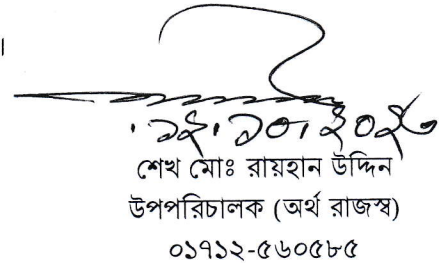 ১২.১০.২০২৬
শেখ মোঃ রায়হান উদ্দিন
উপপরিচালক (অর্থ রাজস্ব)
০১৭১২-৫৬০৫৮৫